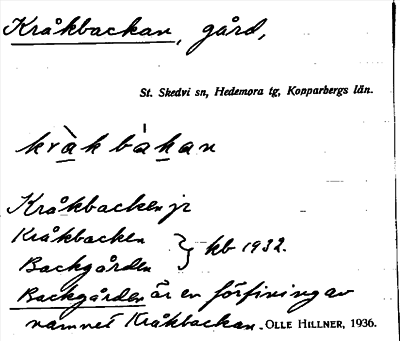 Kråkbackan, gård,
St. Skedvi sn, Hedemora tg, Kopparbergs län.
kràkbàkan
Kråkbacken jr
Kråkbacken
Backgården } kb 1932.
Backgården är en förfining av
namnet Kråkbackan. OLLE HILLNER, 1936.